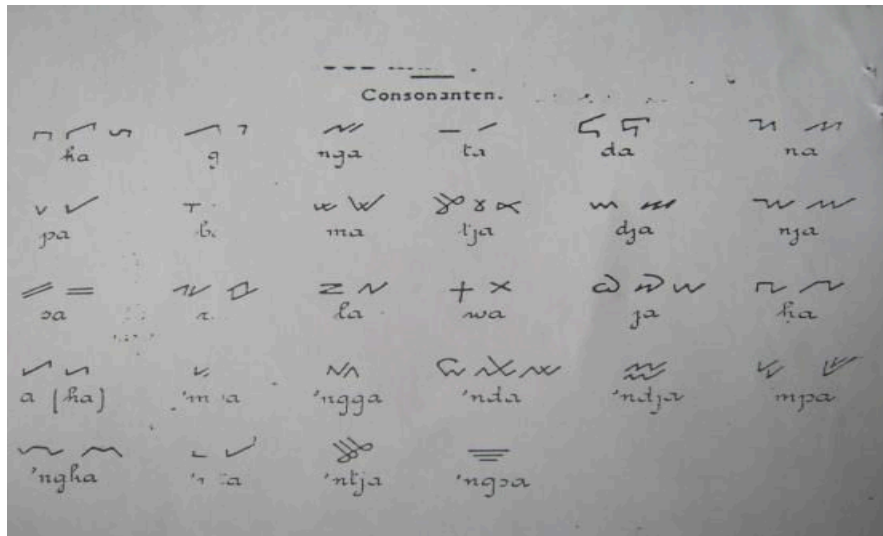 Consonanten.
ka nga ta da na
pa ma tja dja nja
sa la wa ja ha
a (ha) 'ngga 'nda 'ndja 'mpa
'ngka 'ntja 'ngsa